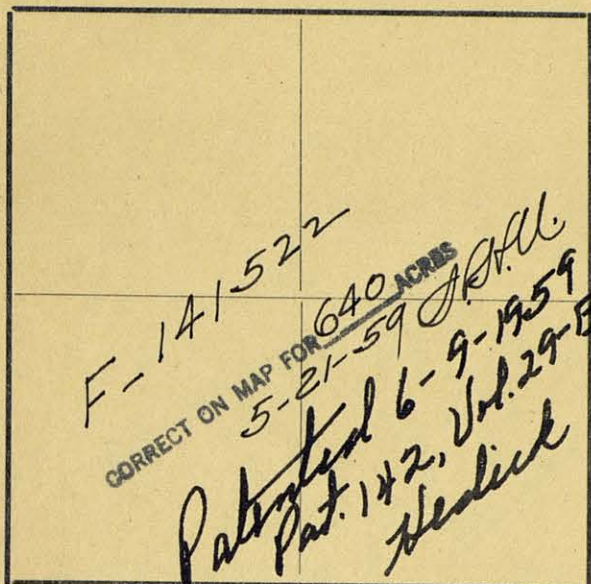 F-141522
CORRECT ON MAP FOR 640 ACRES
5-21-59
Patented 6-9-1959
Pat. 142, Vol. 29-B
Hedick